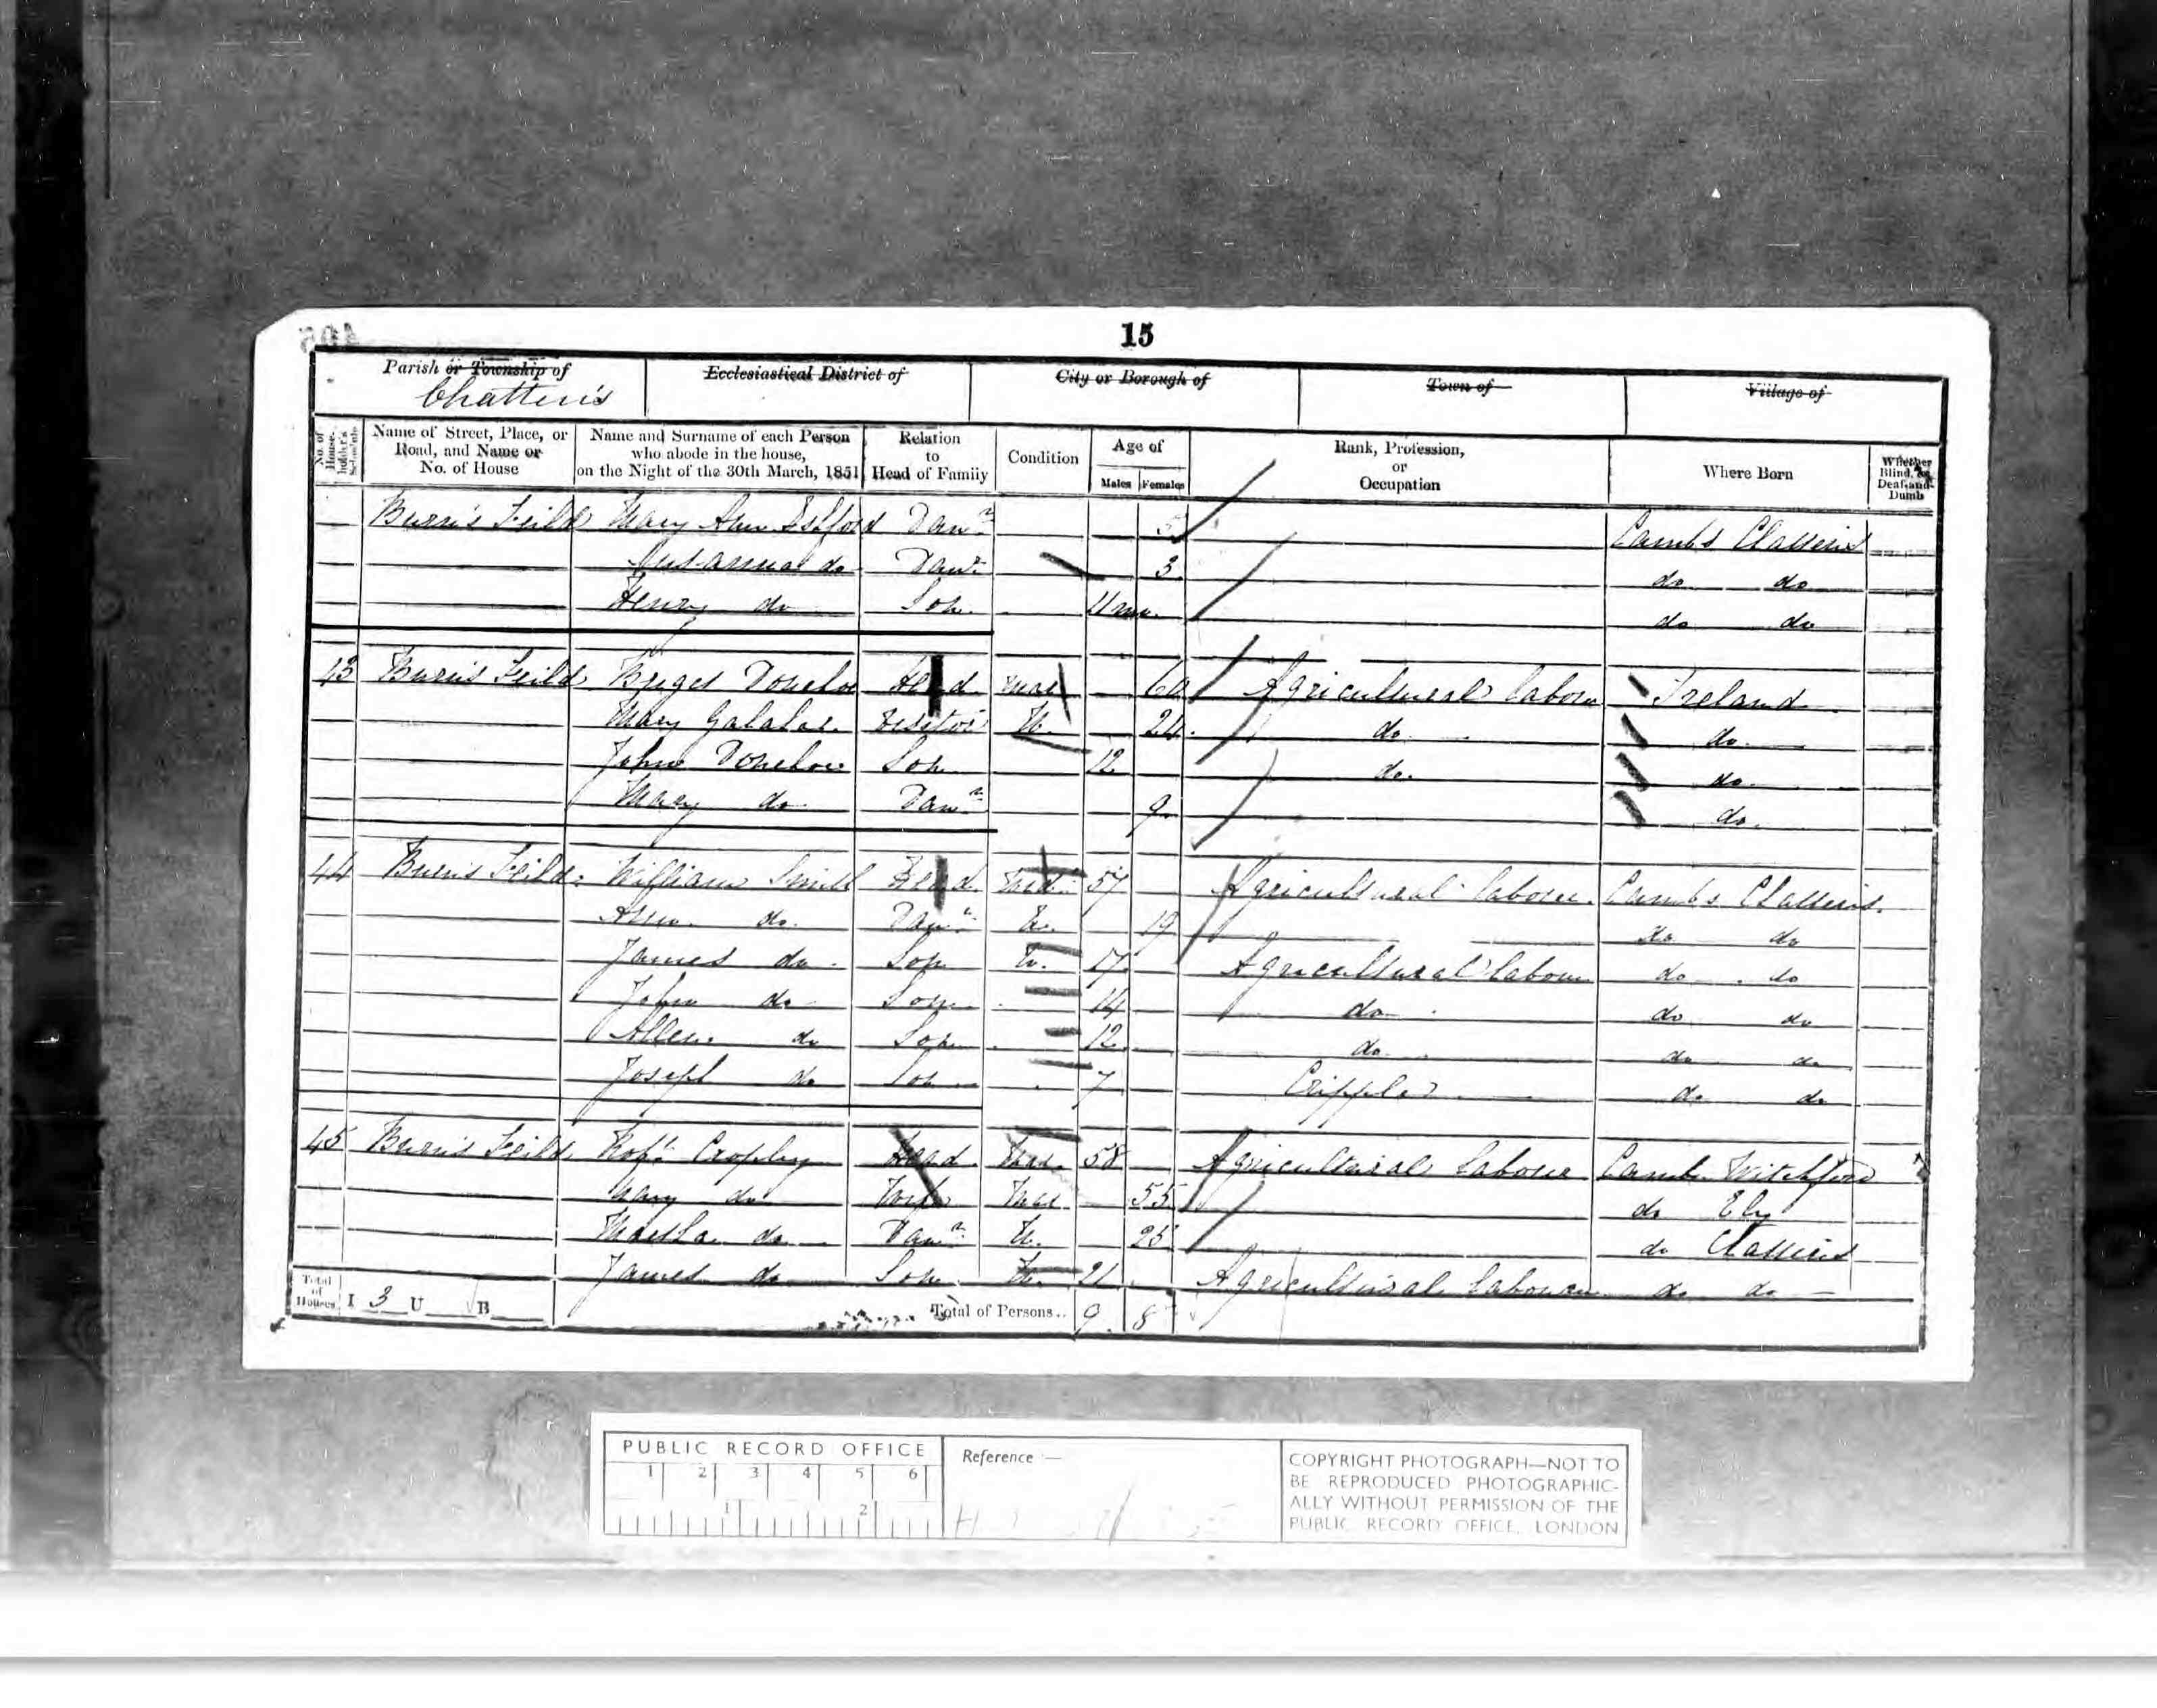 15
Parish or Township of Chatteris
Ecclesiastical District of
City or Borough of
Town of
Village of
No. of House-holder's Schedule
Name of Street, Place, or Road, and Name or No. of House
Name and Surname of each Person who abode in the house, on the Night of the 30th March, 1851
Relation to Head of Family
Condition
Age of
Males Females
Rank, Profession, or Occupation
Where Born
Whether Blind, or Deaf-and-Dumb
Burn's Feild Mary Ann Daur 5 Cambs Chatteris
do Daur 3 do do
Henry do Son 11 mo. do do
43 Burn's Feild Head mar 60 Agricultural labour Ireland
Mary Visitor U. 24 do do
John Son 12 do do
Mary do Daur 9 do
44 Burn's Feild William Smith Head 57 Agricultural labour Cambs Chatteris
Ann do Daur U. 19 do do
James do Son U. 17 Agricultural labour do do
John do Son 14 do do do
Allen do Son 12 do do do
Joseph do Son 7 Cripple do do
45 Burn's Feild Robt Cropley Head mar 58 Agricultural labour Cambs Witchford
Mary do Wife mar 55 do Ely
Martha do Daur U. 25 do Chatteris
James do Son U. 21 Agricultural labour do do
Total of Houses I 3 U B Total of Persons.. 9 8
PUBLIC RECORD OFFICE
1 2 3 4 5 6
1 2
Reference
COPYRIGHT PHOTOGRAPH—NOT TO
BE REPRODUCED PHOTOGRAPHIC-
ALLY WITHOUT PERMISSION OF THE
PUBLIC RECORD OFFICE, LONDON